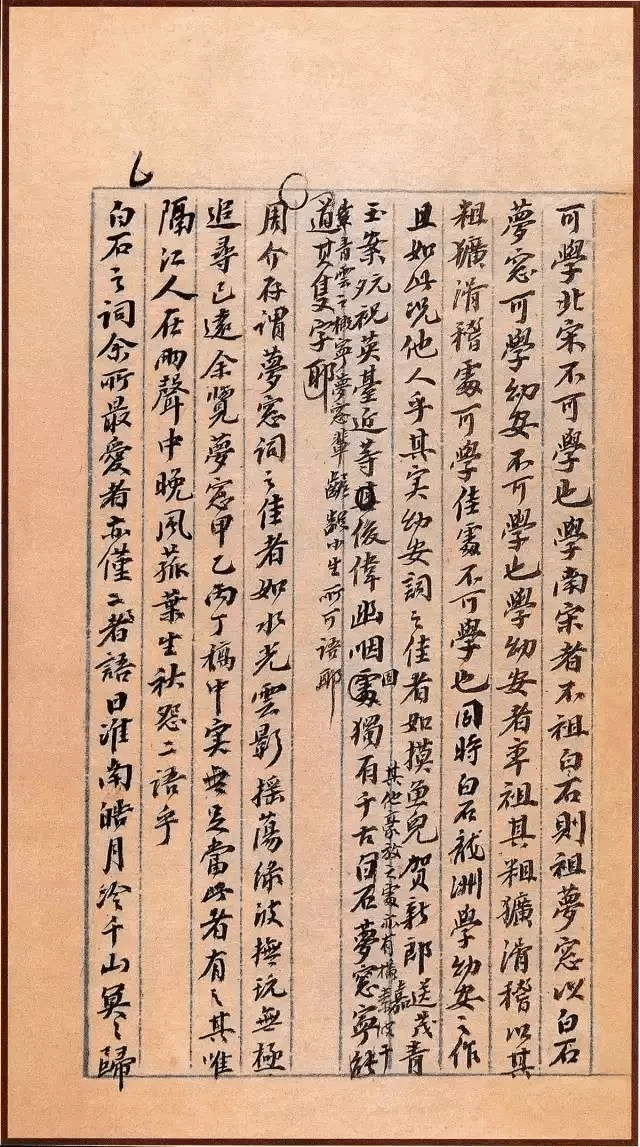 可學北宋不可學也學南宋者不祖白石則祖夢窓以白石
夢窓可學幼安不可學也學幼安者率祖其粗獷滑稽以其
粗獷滑稽處可學佳處不可學也同時白石龍洲學幼安之作
且如此況他人乎其实幼安詞之佳者如摸魚兒賀新郎送茂嘉青
玉案元夕祝英臺近等俊偉幽咽固獨有千古
其他豪放之處亦有橫素波干
青雲之概寧夢窓輩齷齪小生所可語耶
白石夢窓寧能
道其隻字耶
周介存謂夢窓詞之佳者如水光雲影搖蕩綠波撫玩無極
追尋已遠余覽夢窓甲乙丙丁稿中实無足當此者有之其唯
隔江人在雨聲中晚風菰葉生秋怨二語乎
白石之詞余所最愛者亦僅二語曰淮南皓月冷千山冥之歸